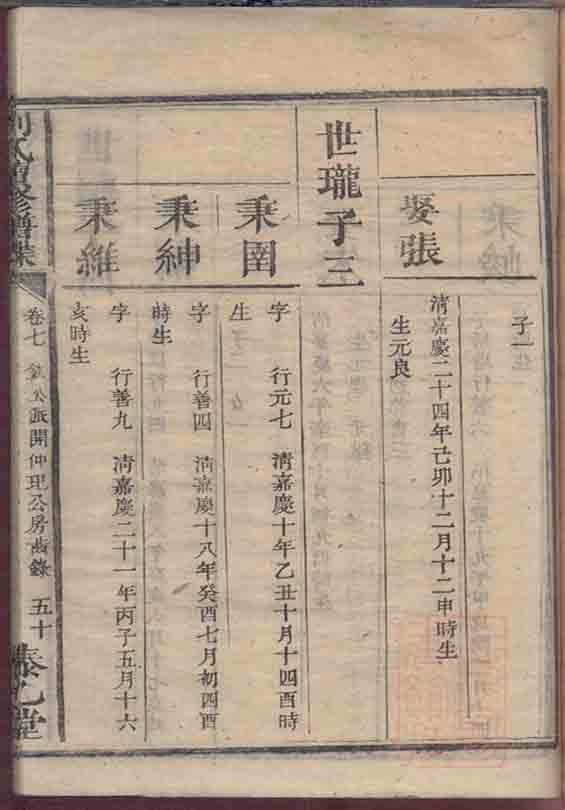 子一
娶張
清嘉慶二十四年己卯十二月十二申時生
生元良
世瓏子三
秉圉
字 行元七 清嘉慶十年乙丑十月十四酉時
生
秉紳
字 行善四 清嘉慶十八年癸酉七月初四酉
時生
秉維
字 行善九 清嘉慶二十一年丙子五月十六
亥時生
氏增修譜牒
卷七 公派開仲理公房 錄 五十
泰乙堂